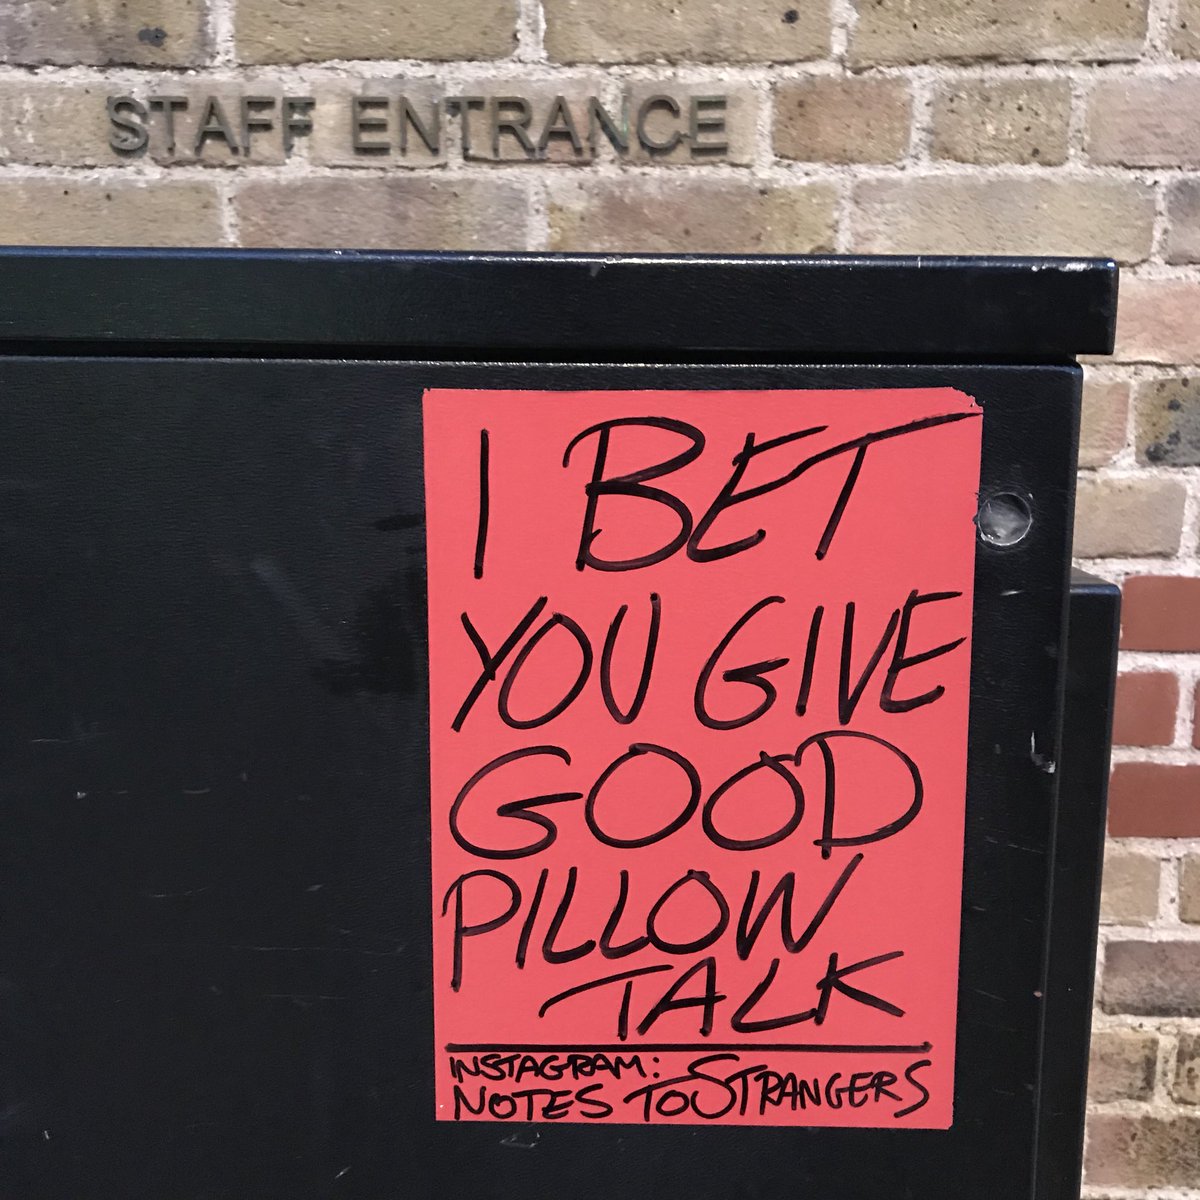 STAFF ENTRANCE
I BET
YOU GIVE
GOOD
PILLOW
TALK
INSTAGRAM:
NOTES TO STRANGERS